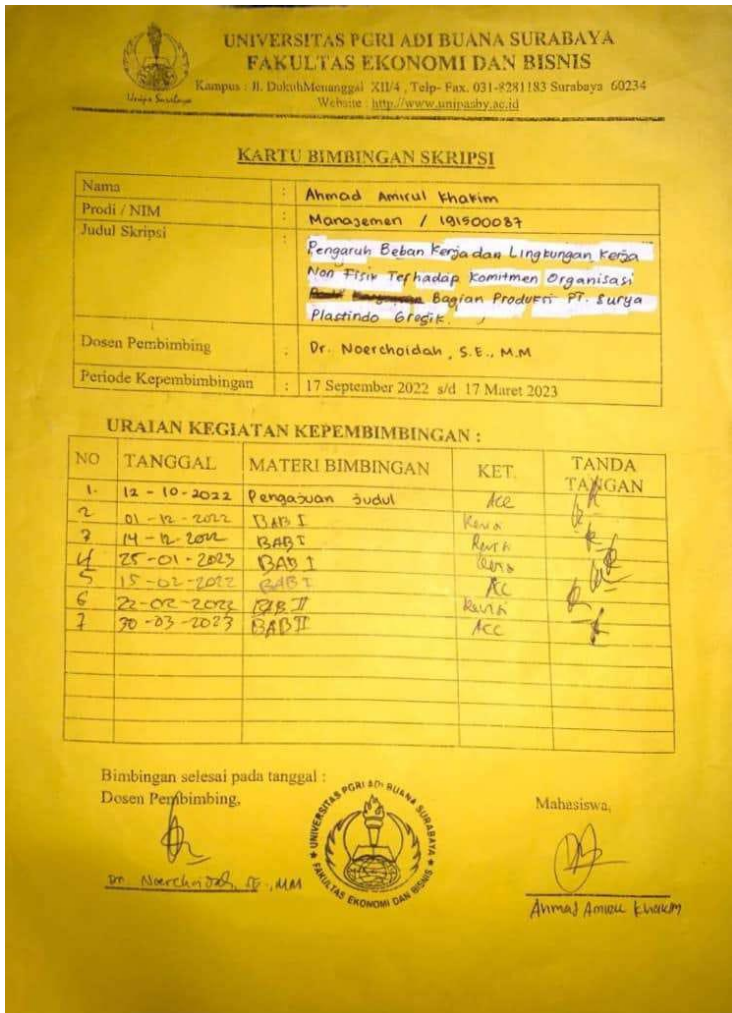 UNIVERSITAS PGRI ADI BUANA SURABAYA
FAKULTAS EKONOMI DAN BISNIS
Kampus : Jl. DukuhMenanggal XII/4 , Telp- Fax. 031-8281183 Surabaya 60234
Website : http.//www.unipasby.ac.id
Unipa Surabaya
KARTU BIMBINGAN SKRIPSI
Nama : Ahmad Amirul Khakim
Prodi / NIM : Manajemen / 191500087
Judul Skripsi : Pengaruh Beban Kerja dan Lingkungan Kerja
Non Fisik Terhadap Komitmen Organisasi
Bagian Produksi PT. Surya
Plastindo Gresik.
Dosen Pembimbing : Dr. Noerchoidah, S.E., M.M
Periode Kepembimbingan : 17 September 2022 s/d 17 Maret 2023
URAIAN KEGIATAN KEPEMBIMBINGAN :
NO TANGGAL MATERI BIMBINGAN KET. TANDA TANGAN
1. 12 - 10 - 2022 Pengajuan Judul Acc
2 01 - 12 - 2022 BAB I Revisi
3 14 - 12 - 2022 BAB I Revisi
4 25 - 01 - 2023 BAB I Revisi
5 15 - 02 - 2022 BAB I Acc
6 22 - 02 - 2023 BAB II Revisi
7 30 - 03 - 2023 BAB II Acc
Bimbingan selesai pada tanggal :
Dosen Pembimbing,
Mahasiswa,
UNIVERSITAS PGRI ADI BUANA SURABAYA
FAKULTAS EKONOMI DAN BISNIS
Dr. Noerchoidah, SE., MM
Ahmad Amirul Khakim